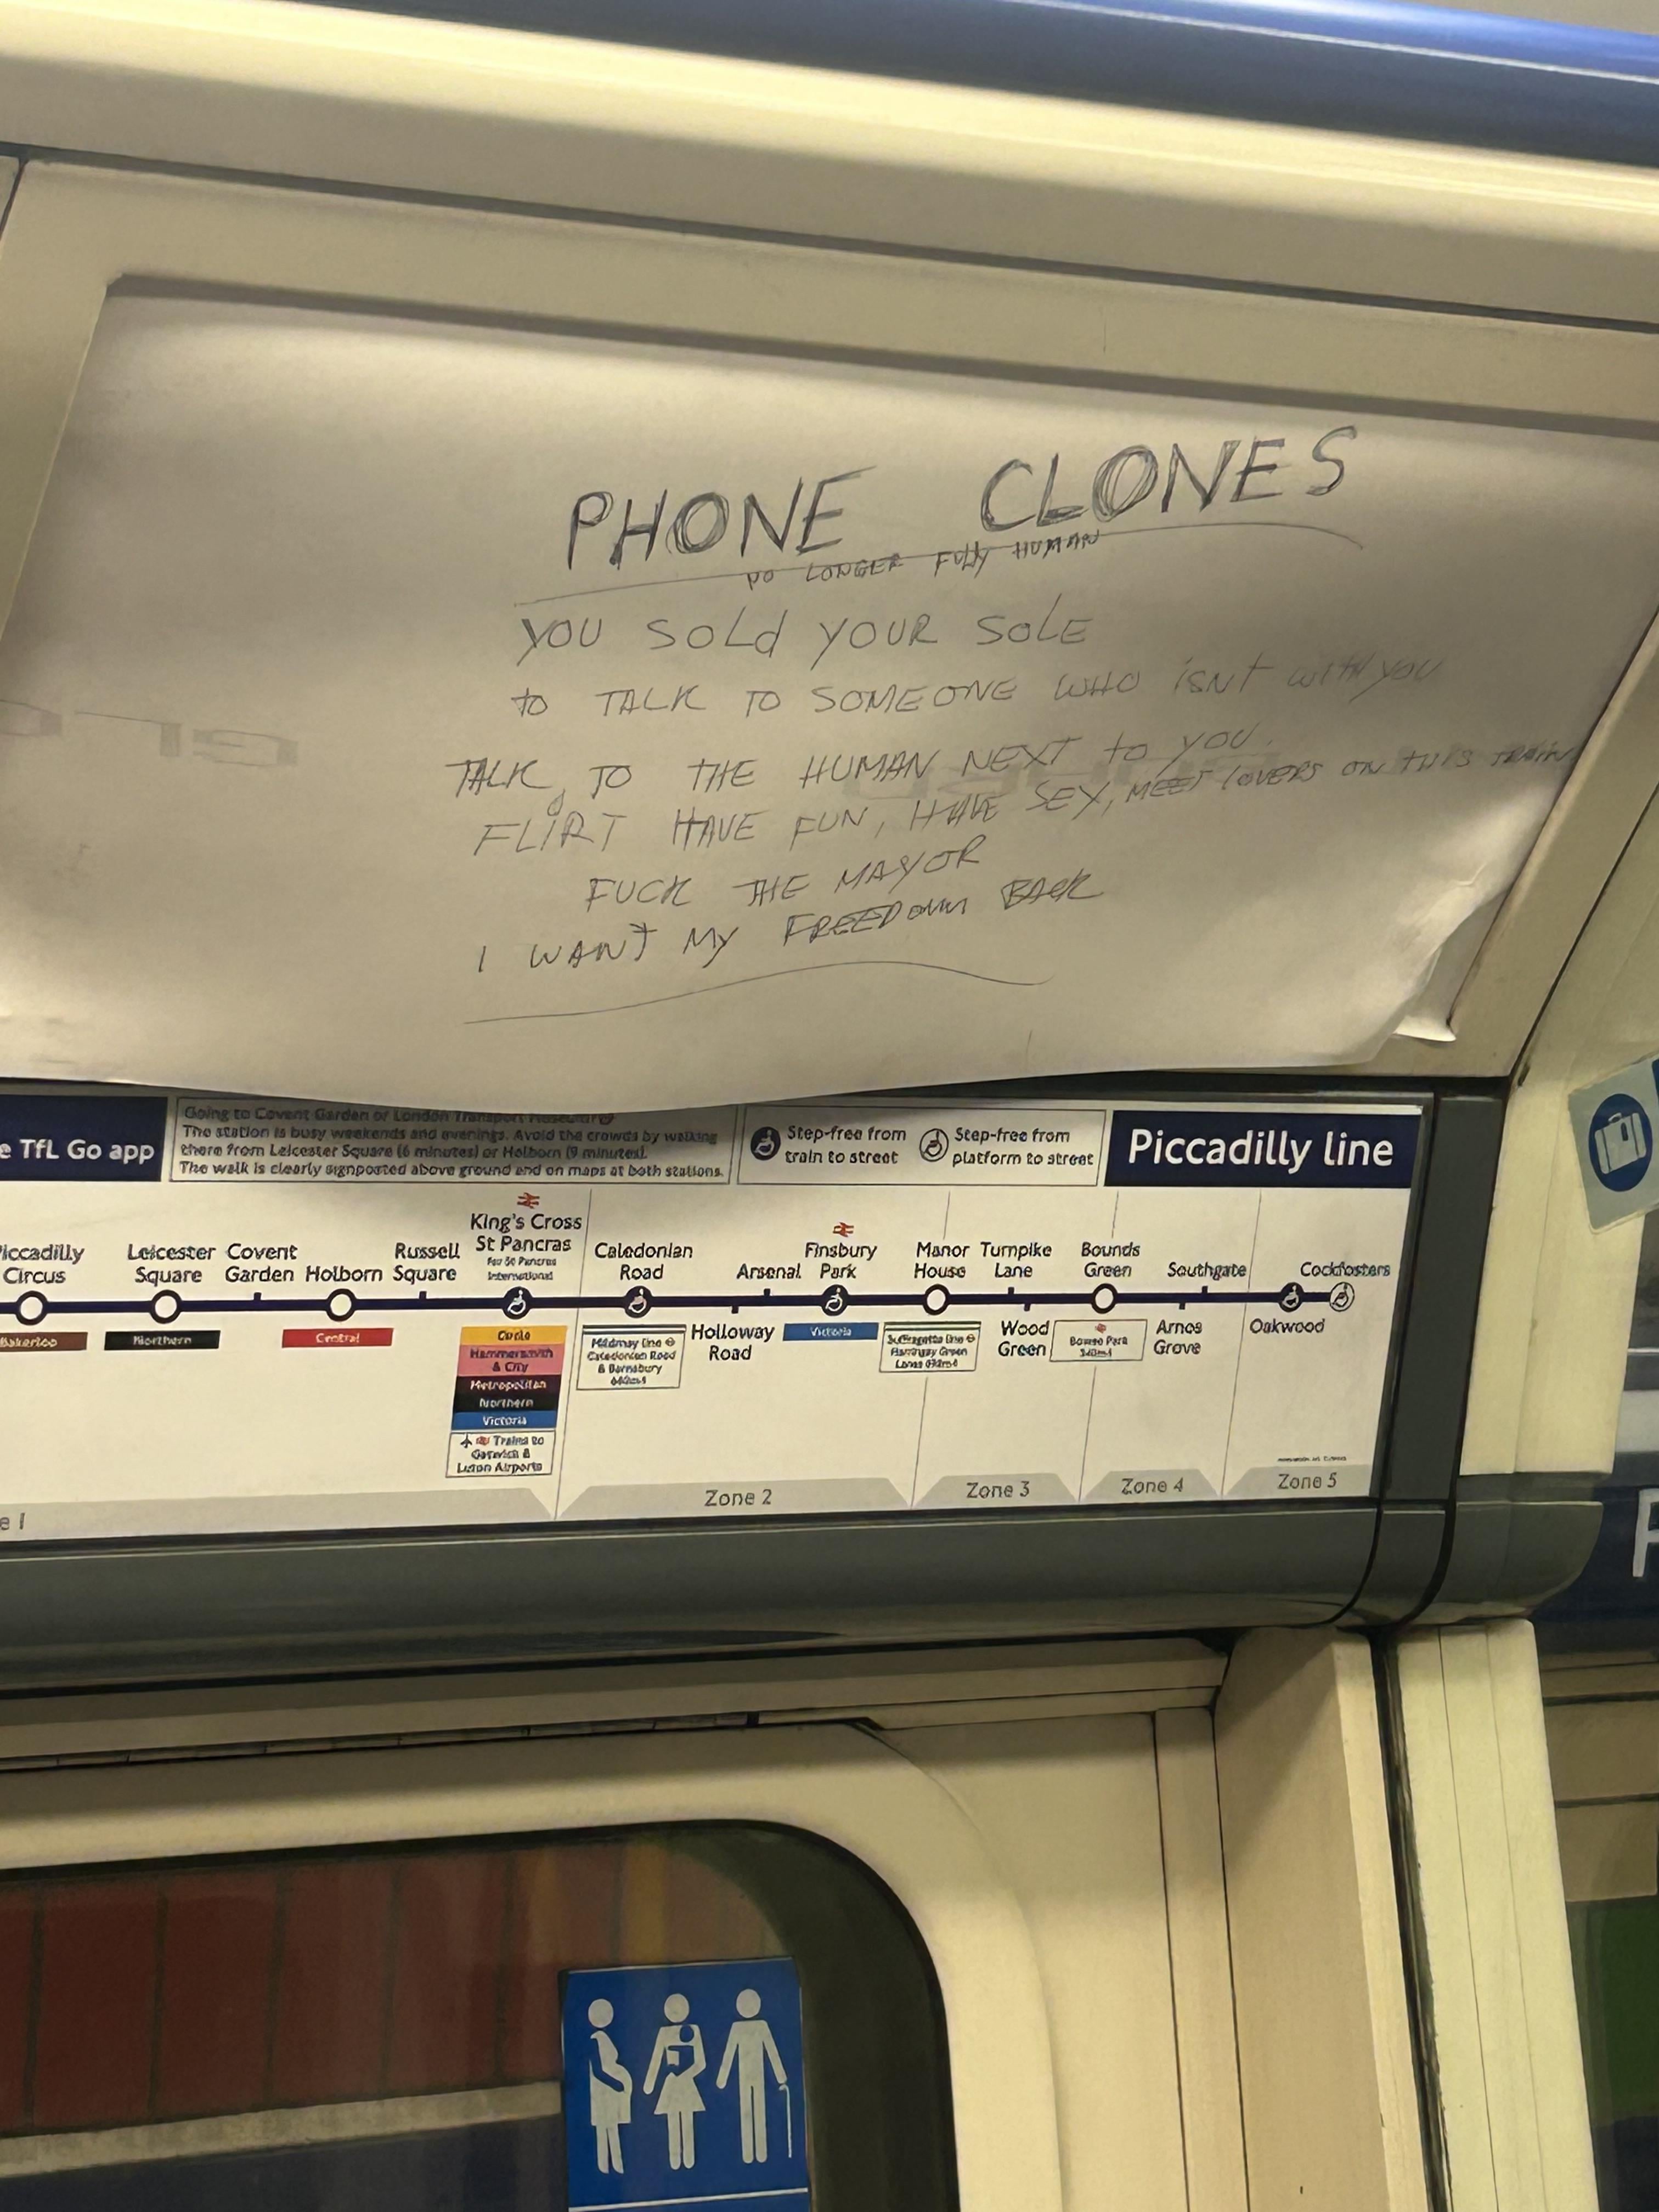 PHONE CLONES
NO LONGER FULLY HUMAN
YOU SOLd YOUR SOLE
to TALK TO SOMEONE WHO isNt WITH YOU
TALK TO THE HUMAN NEXT to YOU.
FLIRT HAVE FUN, HAVE SEX, MEET LOVERS ON THIS TRAIN
FUCK THE MAYOR
I WANT MY FREEDOM BACK
e TfL Go app
Going to Covent Garden or London Transport Museum?
The station is busy weekends and evenings. Avoid the crowds by walking
there from Leicester Square (6 minutes) or Holborn (9 minutes).
The walk is clearly signposted above ground and on maps at both stations.
Step-free from
train to street
Step-free from
platform to street
Piccadilly line
Piccadilly
Circus
Leicester
Square
Covent
Garden
Holborn
Russell
Square
King's Cross
St Pancras
For St Pancras
International
Caledonian
Road
Arsenal
Finsbury
Park
Manor
House
Turnpike
Lane
Bounds
Green
Southgate
Cockfosters
Bakerloo
Northern
Central
Circle
Hammersmith
& City
Metropolitan
Northern
Victoria
Trains to
Gatwick &
Luton Airports
Mildmay line
Caledonian Road
& Barnsbury
Holloway
Road
Victoria
Suffragette line
Harringay Green
Lanes
Wood
Green
Bowes Park
Arnos
Grove
Oakwood
e 1
Zone 2
Zone 3
Zone 4
Zone 5